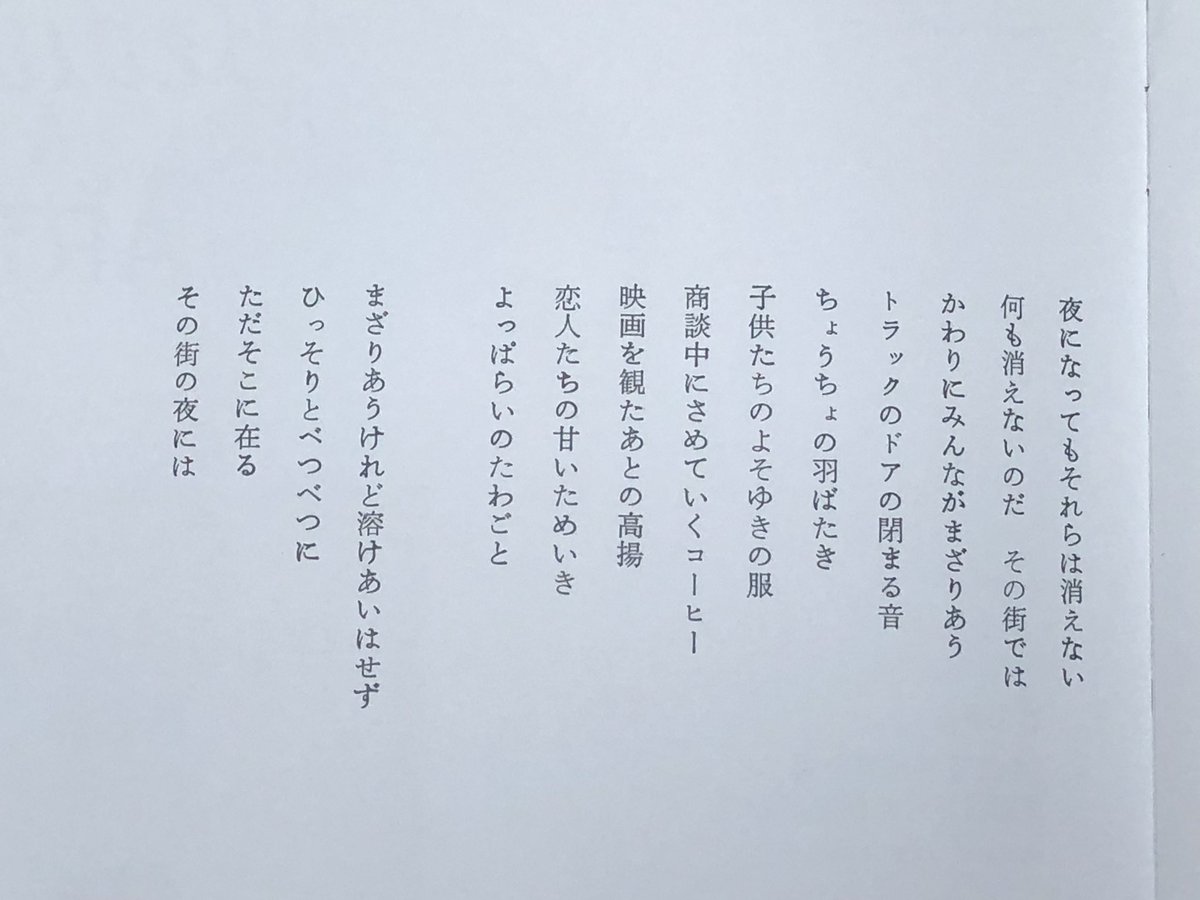 夜になってもそれらは消えない
何も消えないのだ　その街では
かわりにみんながまざりあう
トラックのドアの閉まる音
ちょうちょの羽ばたき
子供たちのよそゆきの服
商談中にさめていくコーヒー
映画を観たあとの高揚
恋人たちの甘いためいき
よっぱらいのたわごと
まざりあうけれど溶けあいはせず
ひっそりとべつべつに
ただそこに在る
その街の夜には